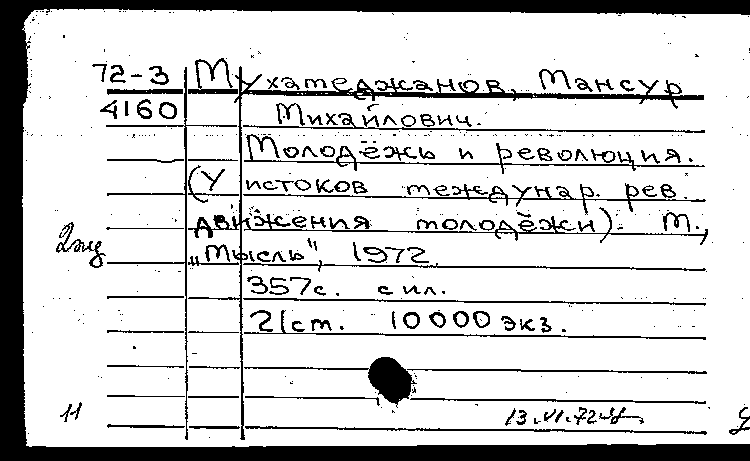 72-3 Мухамеджанов, Мансур
4160 Михайлович.
Молодёжь и революция.
(У истоков междунар. рев.
движения молодёжи). М.,
2жд „Мысль", 1972.
357с. с ил.
21см. 10000 экз.
11 13.VI.72